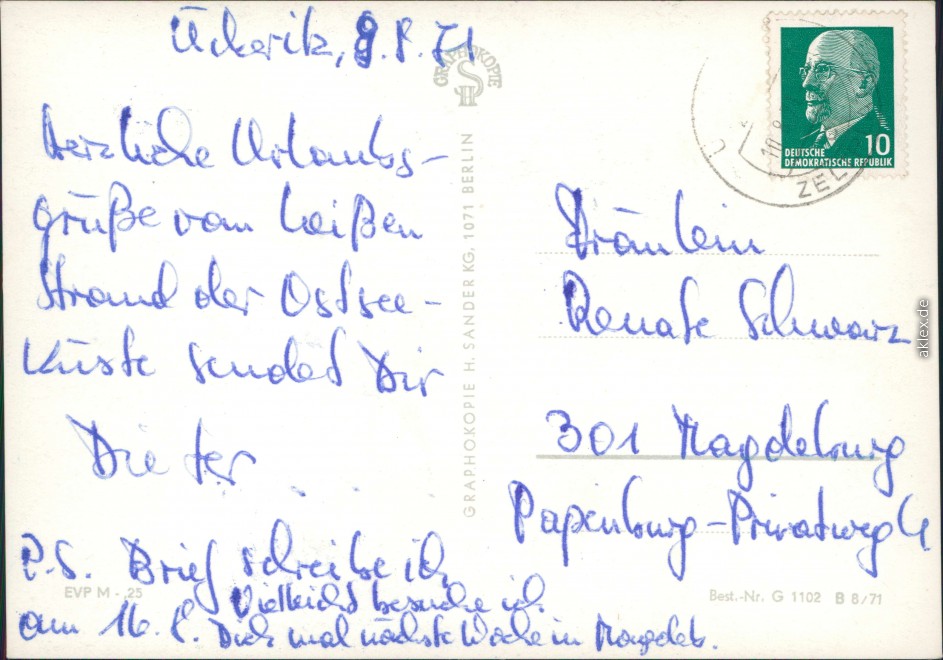 Ückeritz, 9.8.71
Herzliche Urlaubs-
grüße vom heißen
Strand der Ostsee-
küste sendet Dir
Dieter
P.S. Brief schreibe ich
am 16.8. Vielleicht besuche ich
Dich mal nächste Woche in Magdeb.
EVP M -,25
GRAPHOKOPIE
H S
GRAPHOKOPIE H. SANDER KG, 1071 BERLIN
DEUTSCHE
DEMOKRATISCHE REPUBLIK
10
ZEL
Fräulein
Renate Schwarz
301 Magdeburg
Papenburg-Privatweg 4
Best.-Nr. G 1102 B 8/71
aklex.de